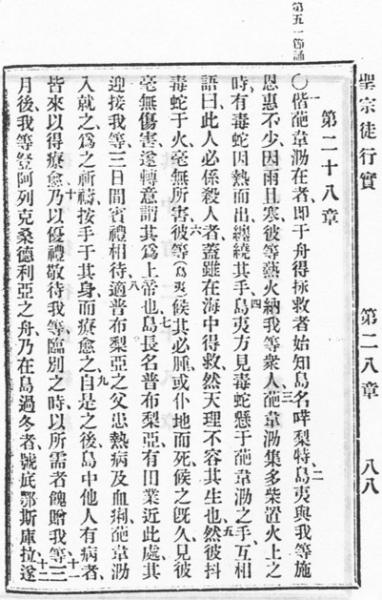 聖宗徒行實 第二八章 八八
第五一節誦
第二十八章
一〇偕葩韋泐在者、即于舟得拯救者始知島名咩梨特島夷與我等施二
恩惠不少、因雨且寒、彼等爇火納我等衆人、葩韋泐集多柴置火上之三
時、有毒蛇因熱而出、纏繞其手、島夷方見毒蛇懸于葩韋泐之手、互相四
語曰、此人必係殺人者、蓋雖在海中得救、然天理不容其生也、然彼抖五
毒蛇于火、毫無所害、彼等（島夷）候其必腫或仆地而死、候之旣久、見彼六
毫無傷害、遂轉意謂其爲上帝也、島長名普布梨亞、有旧業近此處、其七
迎接我等、三日間賓禮相待、適普布梨亞之父患熱病及血痢、葩韋泐八
入就之、爲之祈禱、按手于其身而療愈之、自是之後、島中他人有病者、九
皆來以得療愈、乃以優禮敬待我等、臨別之時、以所需者餽贈我等、三十 十一
月後、我等登阿列克桑德利亞之舟、乃在島過冬者、號底鄂斯庫拉、遂十二